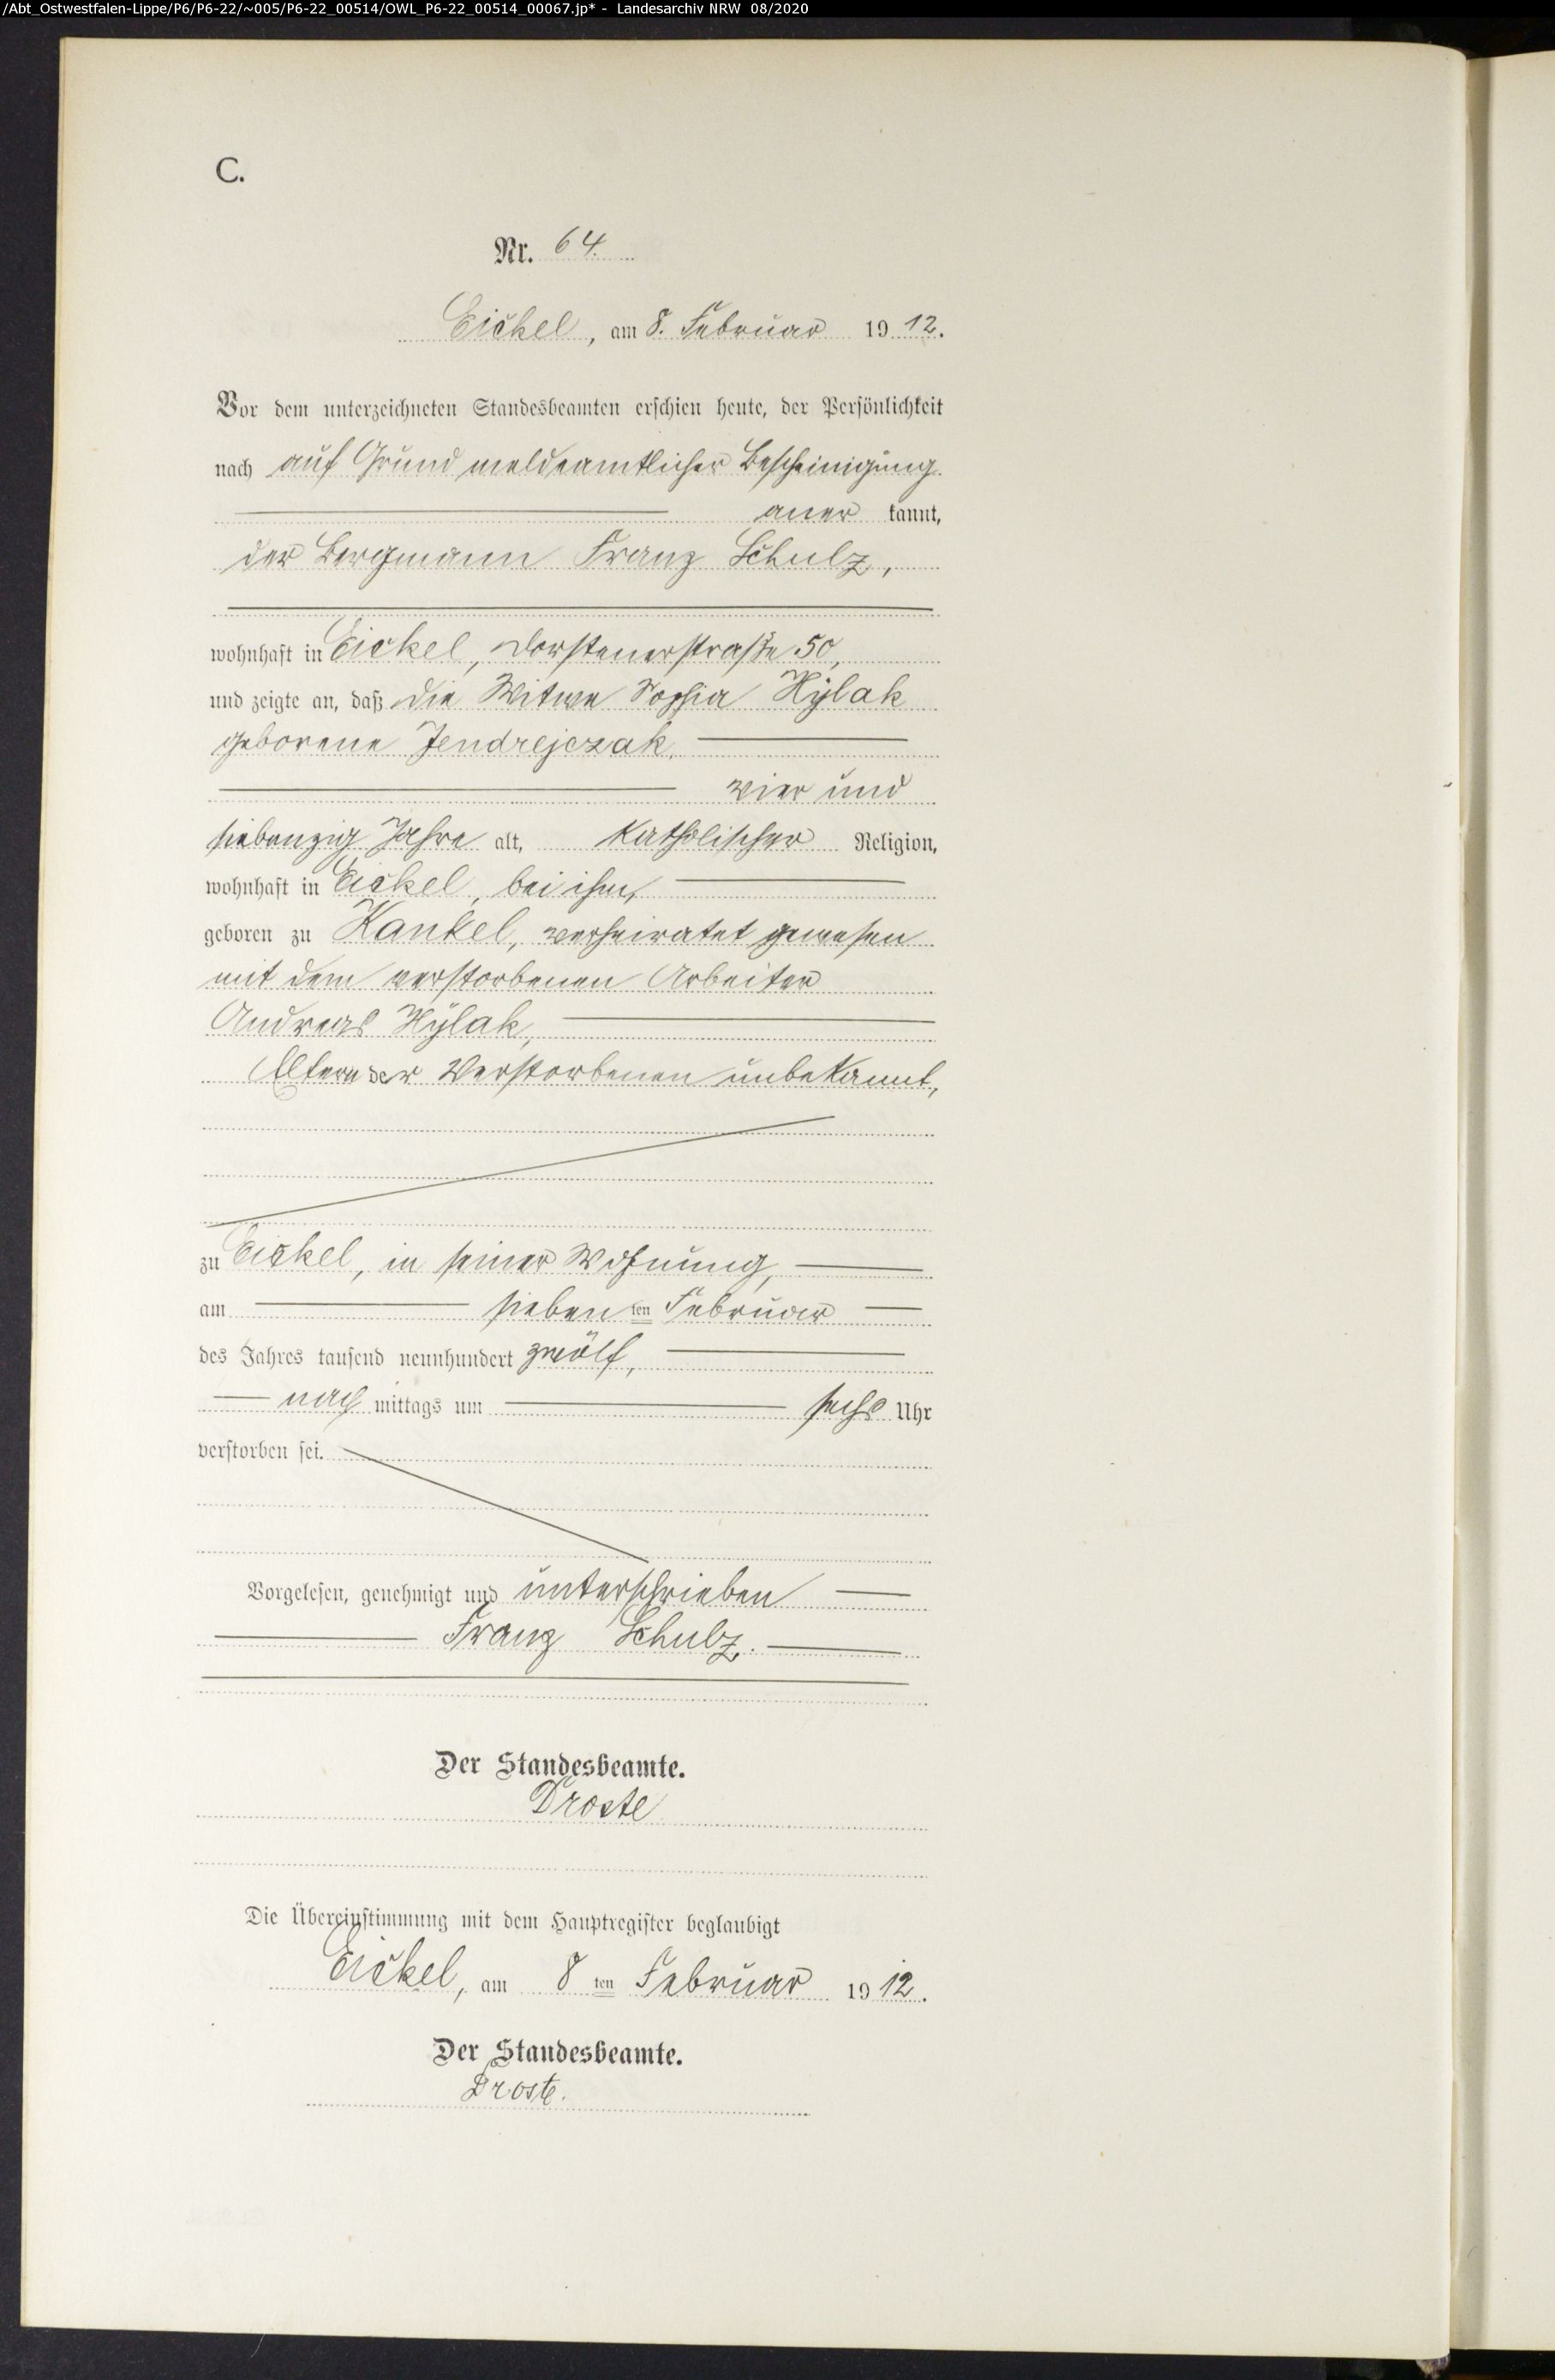 /Abt_Ostwestfalen-Lippe/P6/P6-22/~005/P6-22_00514/OWL_P6-22_00514_00067.jp* - Landesarchiv NRW 08/2020
C.
Nr. 64.
Eickel, am 8. Februar 1912.
Vor dem unterzeichneten Standesbeamten erschien heute, der Persönlichkeit
nach auf Grund meldeamtlicher Bescheinigung
aner kannt,
der Bergmann Franz Schulz,
wohnhaft in Eickel, Dorstenerstraße 50,
und zeigte an, daß die Witwe Sophia Hylak
geborene Jendrejczak,
vier und
siebenzig Jahre alt, katholischer Religion,
wohnhaft in Eickel, bei ihm,
geboren zu Kankel, verheiratet gewesen
mit dem verstorbenen Arbeiter
Andreas Hylak,
Eltern der Verstorbenen unbekannt,
zu Eickel, in seiner Wohnung,
am sieben ten Februar
des Jahres tausend neunhundert zwölf,
nach mittags um sechs Uhr
verstorben sei.
Vorgelesen, genehmigt und unterschrieben
Franz Schulz.
Der Standesbeamte.
Droste
Die Übereinstimmung mit dem Hauptregister beglaubigt
Eickel, am 8 ten Februar 1912.
Der Standesbeamte.
Droste.